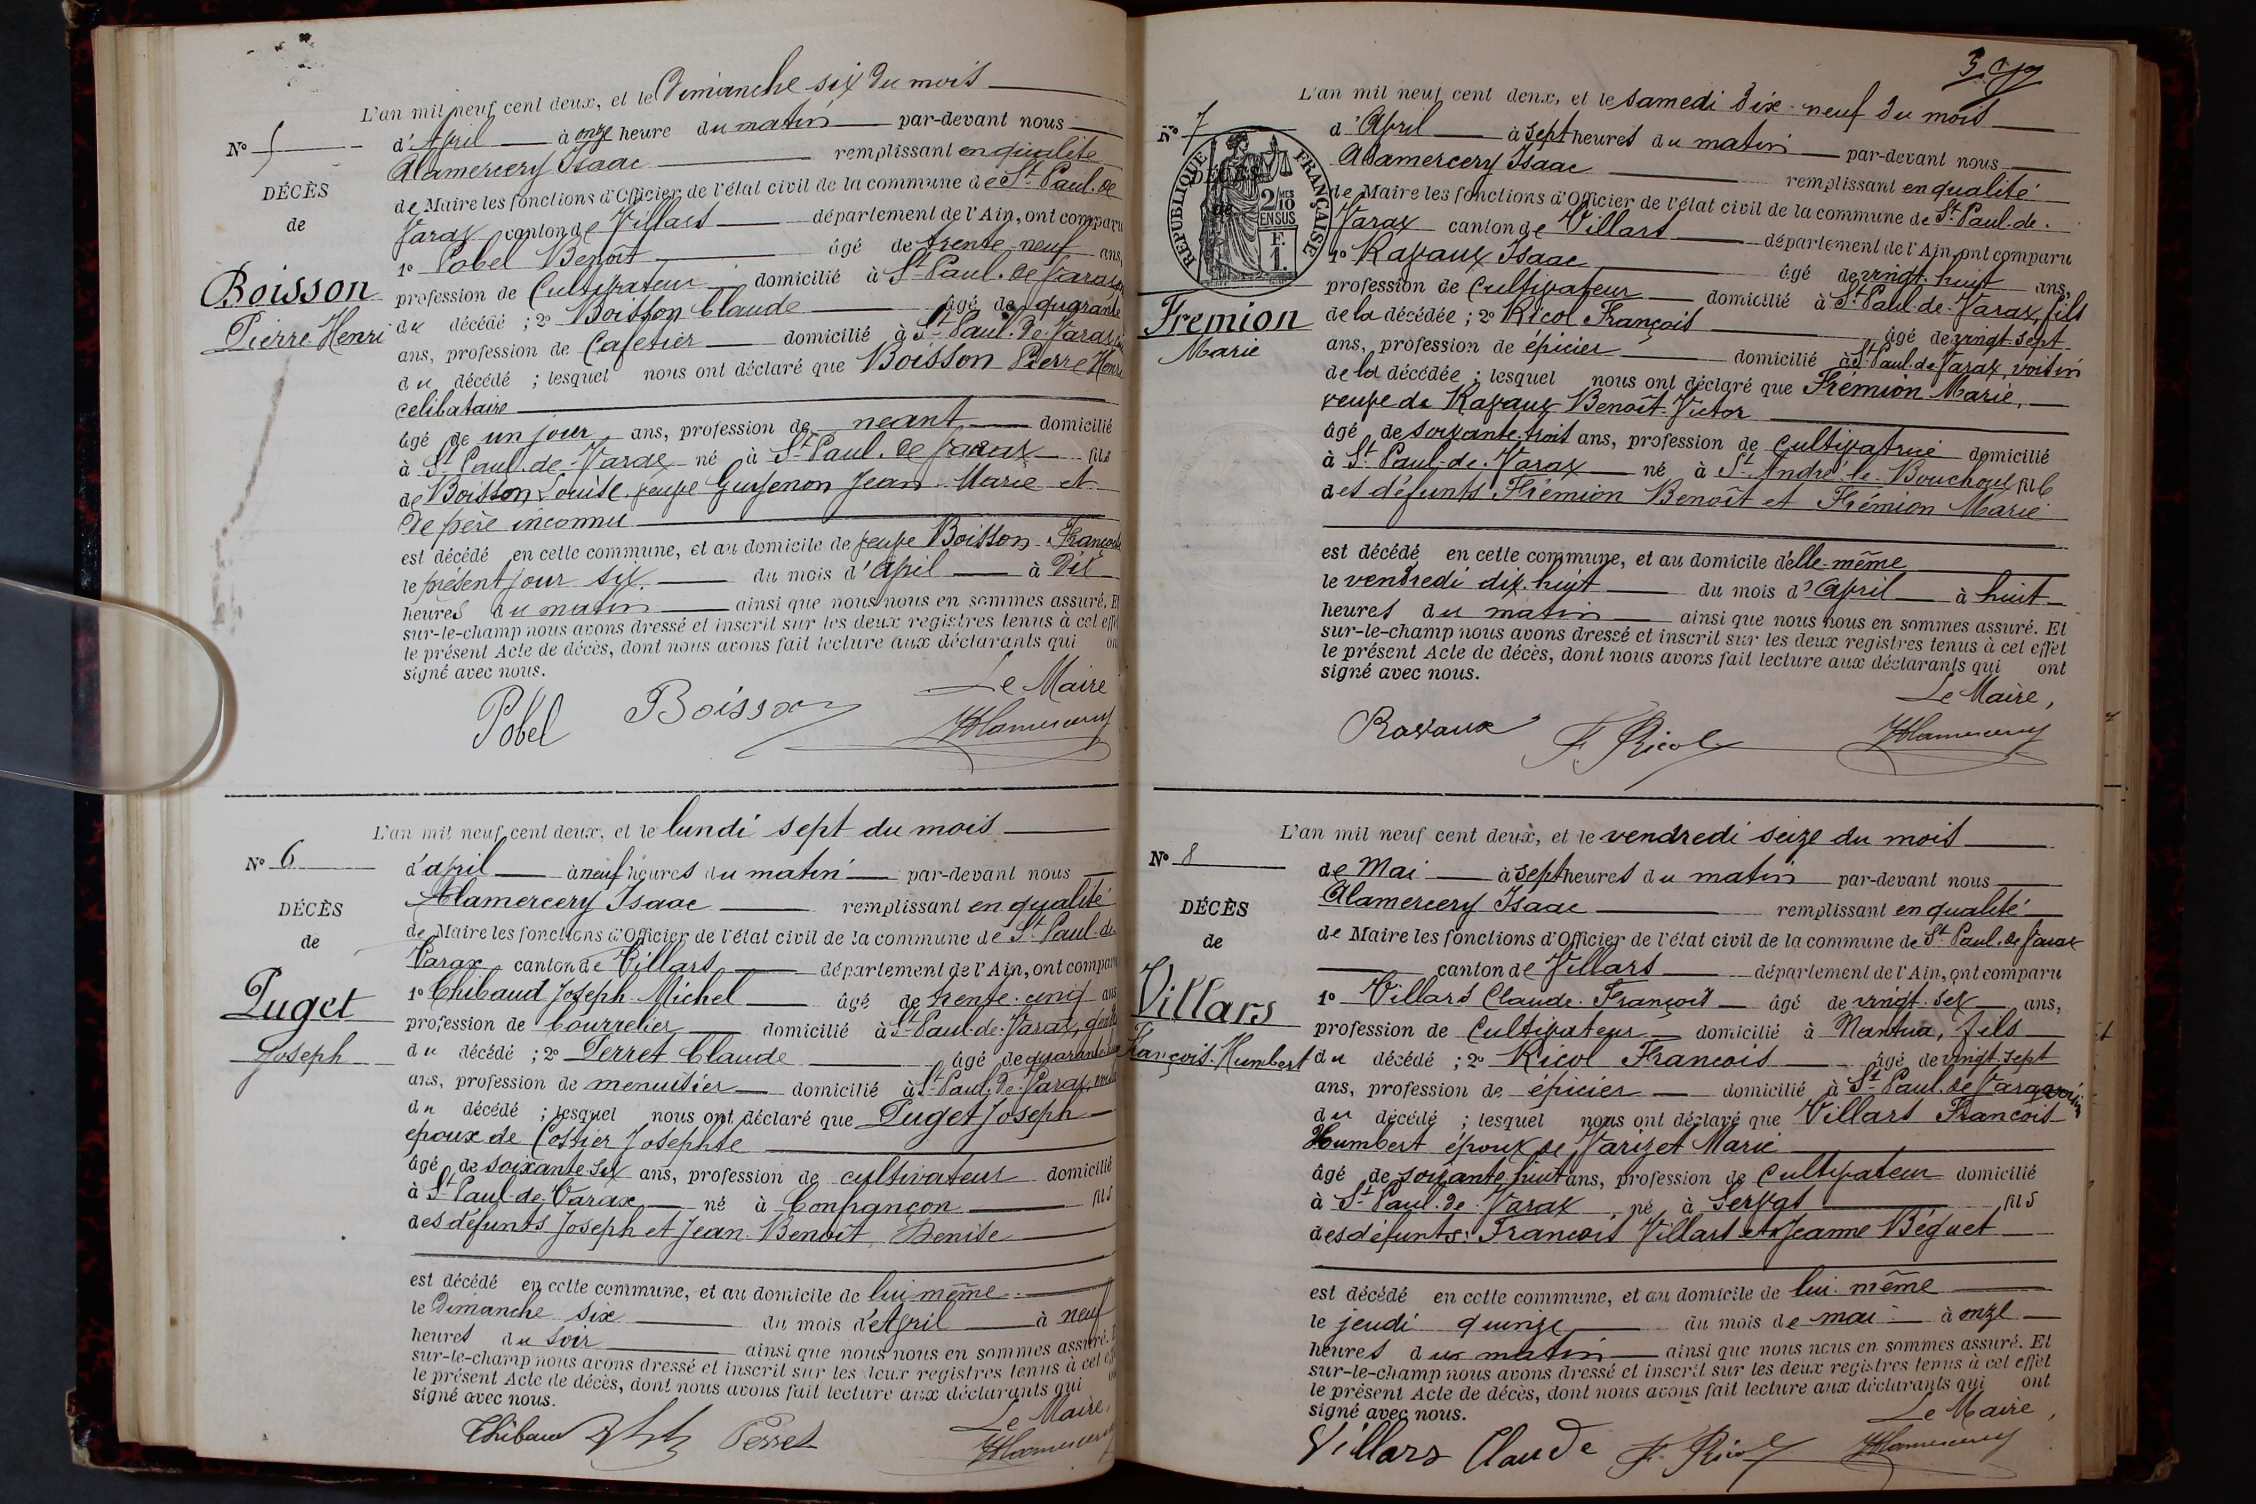 L'an mil neuf cent deux, et le Dimanche six du mois
N° 5
d'Avril à onze heure du matin par-devant nous
Alamercery Isaac remplissant en qualité
DÉCÈS
de Maire les fonctions d'Officier de l'état civil de la commune de St Paul-de
de
Varax canton de Villars département de l'Ain, ont comparu
1° Pobel Benoît âgé de trente-neuf ans,
Boisson
profession de Cultivateur domicilié à St Paul-de-Varax
Pierre Henri
du décédé ; 2° Boisson Claude âgé de quarante
ans, profession de Cafetier domicilié à St Paul-de-Varax
du décédé ; lesquel nous ont déclaré que Boisson Pierre Henri
celibataire
âgé de un jour ans, profession de neant domicilié
à St Paul-de-Varax né à St Paul-de-Varax fils
de Boisson Louise veuve Guyenon Jean-Marie et
de père inconnu
est décédé en cette commune, et au domicile de veuve Boisson
le présent jour six du mois d'Avril à Dix
heures du matin ainsi que nous nous en sommes assuré. Et
sur-le-champ nous avons dressé et inscrit sur les deux registres tenus à cet effet
le présent Acte de décès, dont nous avons fait lecture aux déclarants qui ont
signé avec nous.
Le Maire
Pobel Boisson Alamercery
L'an mil neuf cent deux, et le lundi sept du mois
N° 6
d'avril à neuf heures du matin par-devant nous
Alamercery Isaac remplissant en qualité
DÉCÈS
de Maire les fonctions d'Officier de l'état civil de la commune de St Paul-de
de
Varax canton de Villars département de l'Ain, ont comparu
1° Thibaud Joseph Michel âgé de trente-cinq ans
Puget
profession de bourrelier domicilié à St Paul-de-Varax, gendre
Joseph
du décédé ; 2° Perret Claude âgé de quarante
ans, profession de menuisier domicilié à St Paul-de-Varax, voisin
du décédé ; lesquel nous ont déclaré que Puget Joseph
epoux de Cottier Josephte
âgé de soixante six ans, profession de cultivateur domicilié
à St Paul-de-Varax né à Confrançon fils
des défunts Joseph et Jean-Benoît Denise
est décédé en cette commune, et au domicile de lui même
le Dimanche six du mois d'Avril à neuf
heures du soir ainsi que nous nous en sommes assuré.
sur-le-champ nous avons dressé et inscrit sur les deux registres tenus à cet effet
le présent Acte de décès, dont nous avons fait lecture aux déclarants qui
signé avec nous.
Le Maire,
Thibaud Perret Alamercery
L'an mil neuf cent deux, et le samedi dix-neuf du mois
N° 7
d'Avril à sept heures du matin par-devant nous
Alamercery Isaac remplissant en qualité
DÉCÈS
de
RÉPUBLIQUE FRANÇAISE
2/10 MES EN SUS
F. 1.
de Maire les fonctions d'Officier de l'état civil de la commune de St Paul-de-
Varax canton de Villars département de l'Ain, ont comparu
1° Ravaux Isaac âgé de vingt-huit ans,
profession de Cultivateur domicilié à St Paul-de-Varax, fils
Fremion
de la décédée ; 2° Ricol François âgé de vingt-sept
Marie
ans, profession de épicier domicilié à St Paul-de-Varax, voisin
de la décédée ; lesquel nous ont déclaré que Frémion Marie,
veuve de Ravaux Benoît-Victor
âgé de soixante-trois ans, profession de Cultivatrice domicilié
à St Paul-de-Varax né à St André-le-Bouchoux fil
des défunts Frémion Benoît et Frémion Marie
est décédé en cette commune, et au domicile d'elle-même
le vendredi dix-huit du mois d'Avril à huit
heures du matin ainsi que nous nous en sommes assuré. Et
sur-le-champ nous avons dressé et inscrit sur les deux registres tenus à cet effet
le présent Acte de décès, dont nous avons fait lecture aux déclarants qui ont
signé avec nous.
Le Maire,
Ravaux F. Ricol Alamercery
L'an mil neuf cent deux, et le vendredi seize du mois
N° 8
de Mai à sept heures du matin par-devant nous
Alamercery Isaac remplissant en qualité
DÉCÈS
de Maire les fonctions d'Officier de l'état civil de la commune de St Paul-de-Varax
de
canton de Villars département de l'Ain, ont comparu
Villars
1° Villars Claude-François âgé de vingt-six ans,
profession de Cultivateur domicilié à Nantua, fils
François-Humbert
du décédé ; 2° Ricol François âgé de vingt-sept
ans, profession de épicier domicilié à St Paul-de-Varax voisin
du décédé ; lesquel nous ont déclaré que Villars François
Humbert époux de Varizet Marie
âgé de soixante-huit ans, profession de Cultivateur domicilié
à St Paul-de-Varax né à Servas fils
des défunts François Villars et Jeanne Béguet
est décédé en cette commune, et au domicile de lui-même
le jeudi quinze du mois de mai à onze
heures du matin ainsi que nous nous en sommes assuré. Et
sur-le-champ nous avons dressé et inscrit sur les deux registres tenus à cet effet
le présent Acte de décès, dont nous avons fait lecture aux déclarants qui ont
signé avec nous.
Le Maire,
Villars Claude F. Ricol Alamercery